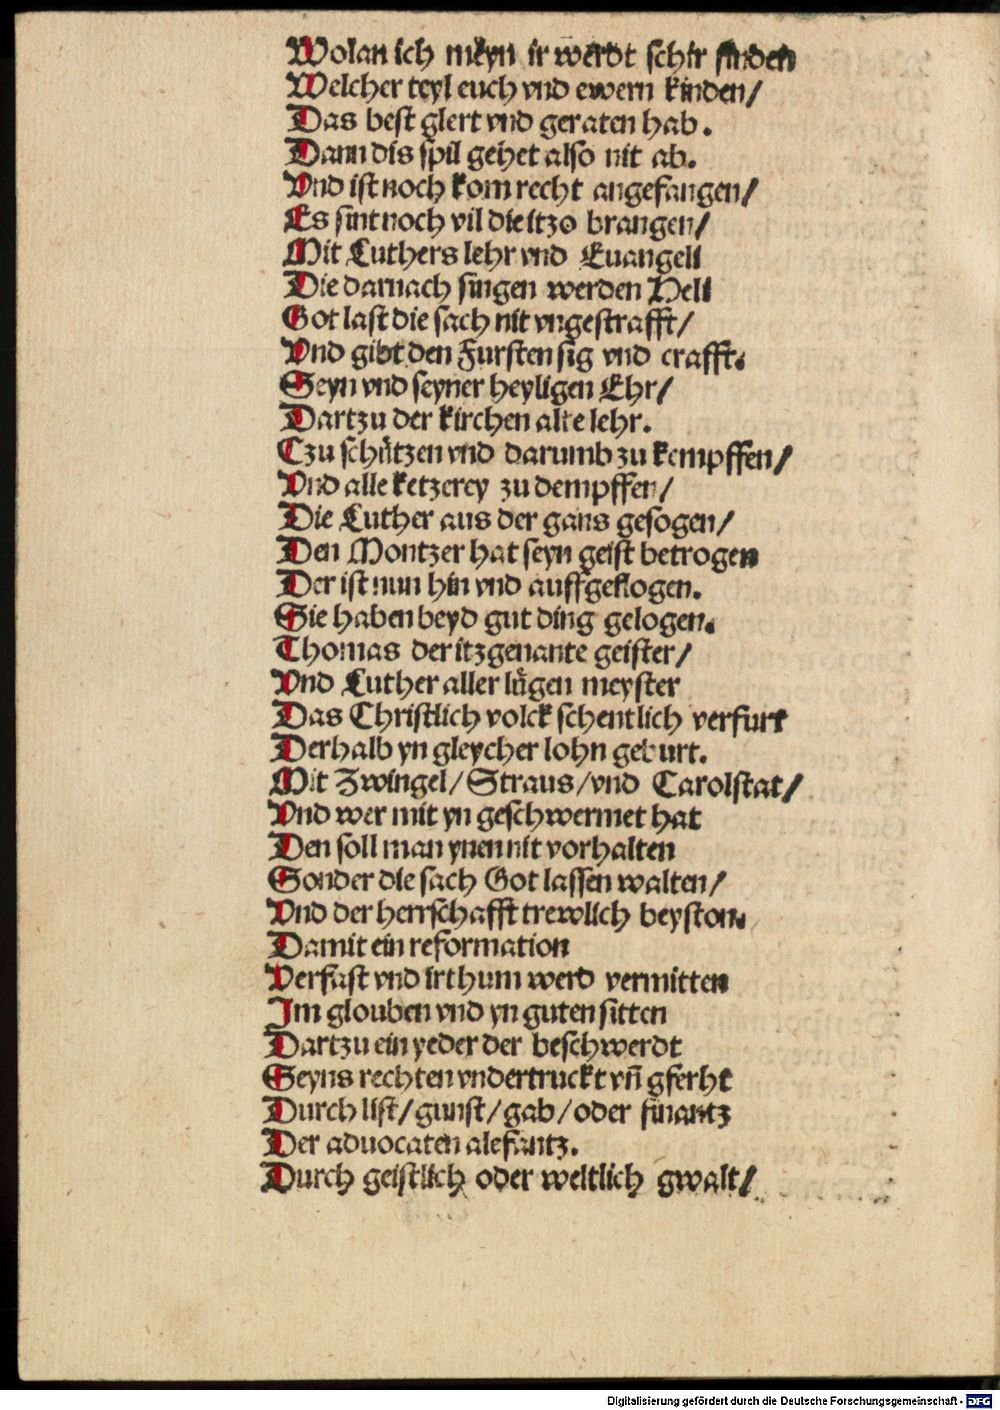 Wolan ich meyn ir werdt schir finden
Welcher teyl euch vnd ewern kinden/
Das best glert vnd geraten hab.
Dann dis spil gehet also nit ab.
Vnd ist noch kom recht angefangen/
Es sint noch vil die itzo brangen/
Mit Luthers lehr vnd Euangeli
Die darnach singen werden Heli
Got last die sach nit vngestrafft/
Vnd gibt den Fursten sig vnd crafft.
Seyn vnd seyner heyligen Ehr/
Dartzu der kirchen alte lehr.
Czu schützen vnd darumb zu kempffen/
Vnd alle ketzerey zu dempffen/
Die Luther aus der gans gesogen/
Den Montzer hat seyn geist betrogen
Der ist nun hin vnd auffgeflogen.
Sie haben beyd gut ding gelogen.
Thomas der itzgenante geister/
Vnd Luther aller lügen meyster
Das Christlich volck schentlich verfurt
Derhalb yn gleycher lohn geburt.
Mit Zwingel/Straus/vnd Carolstat/
Vnd wer mit yn geschwermet hat
Den soll man ynen nit vorhalten
Sonder die sach Got lassen walten/
Vnd der herrschafft trewlich beyston.
Damit ein reformation
Verfast vnd irthum werd vermitten
Im glouben vnd yn guten sitten
Dartzu ein yeder der beschwerdt
Seyns rechten vndertruckt vñ gferht
Durch list/gunst/gab/oder finantz
Der aduocaten alefantz.
Durch geistlich oder weltlich gwalt/
Digitalisierung gefördert durch die Deutsche Forschungsgemeinschaft - DFG